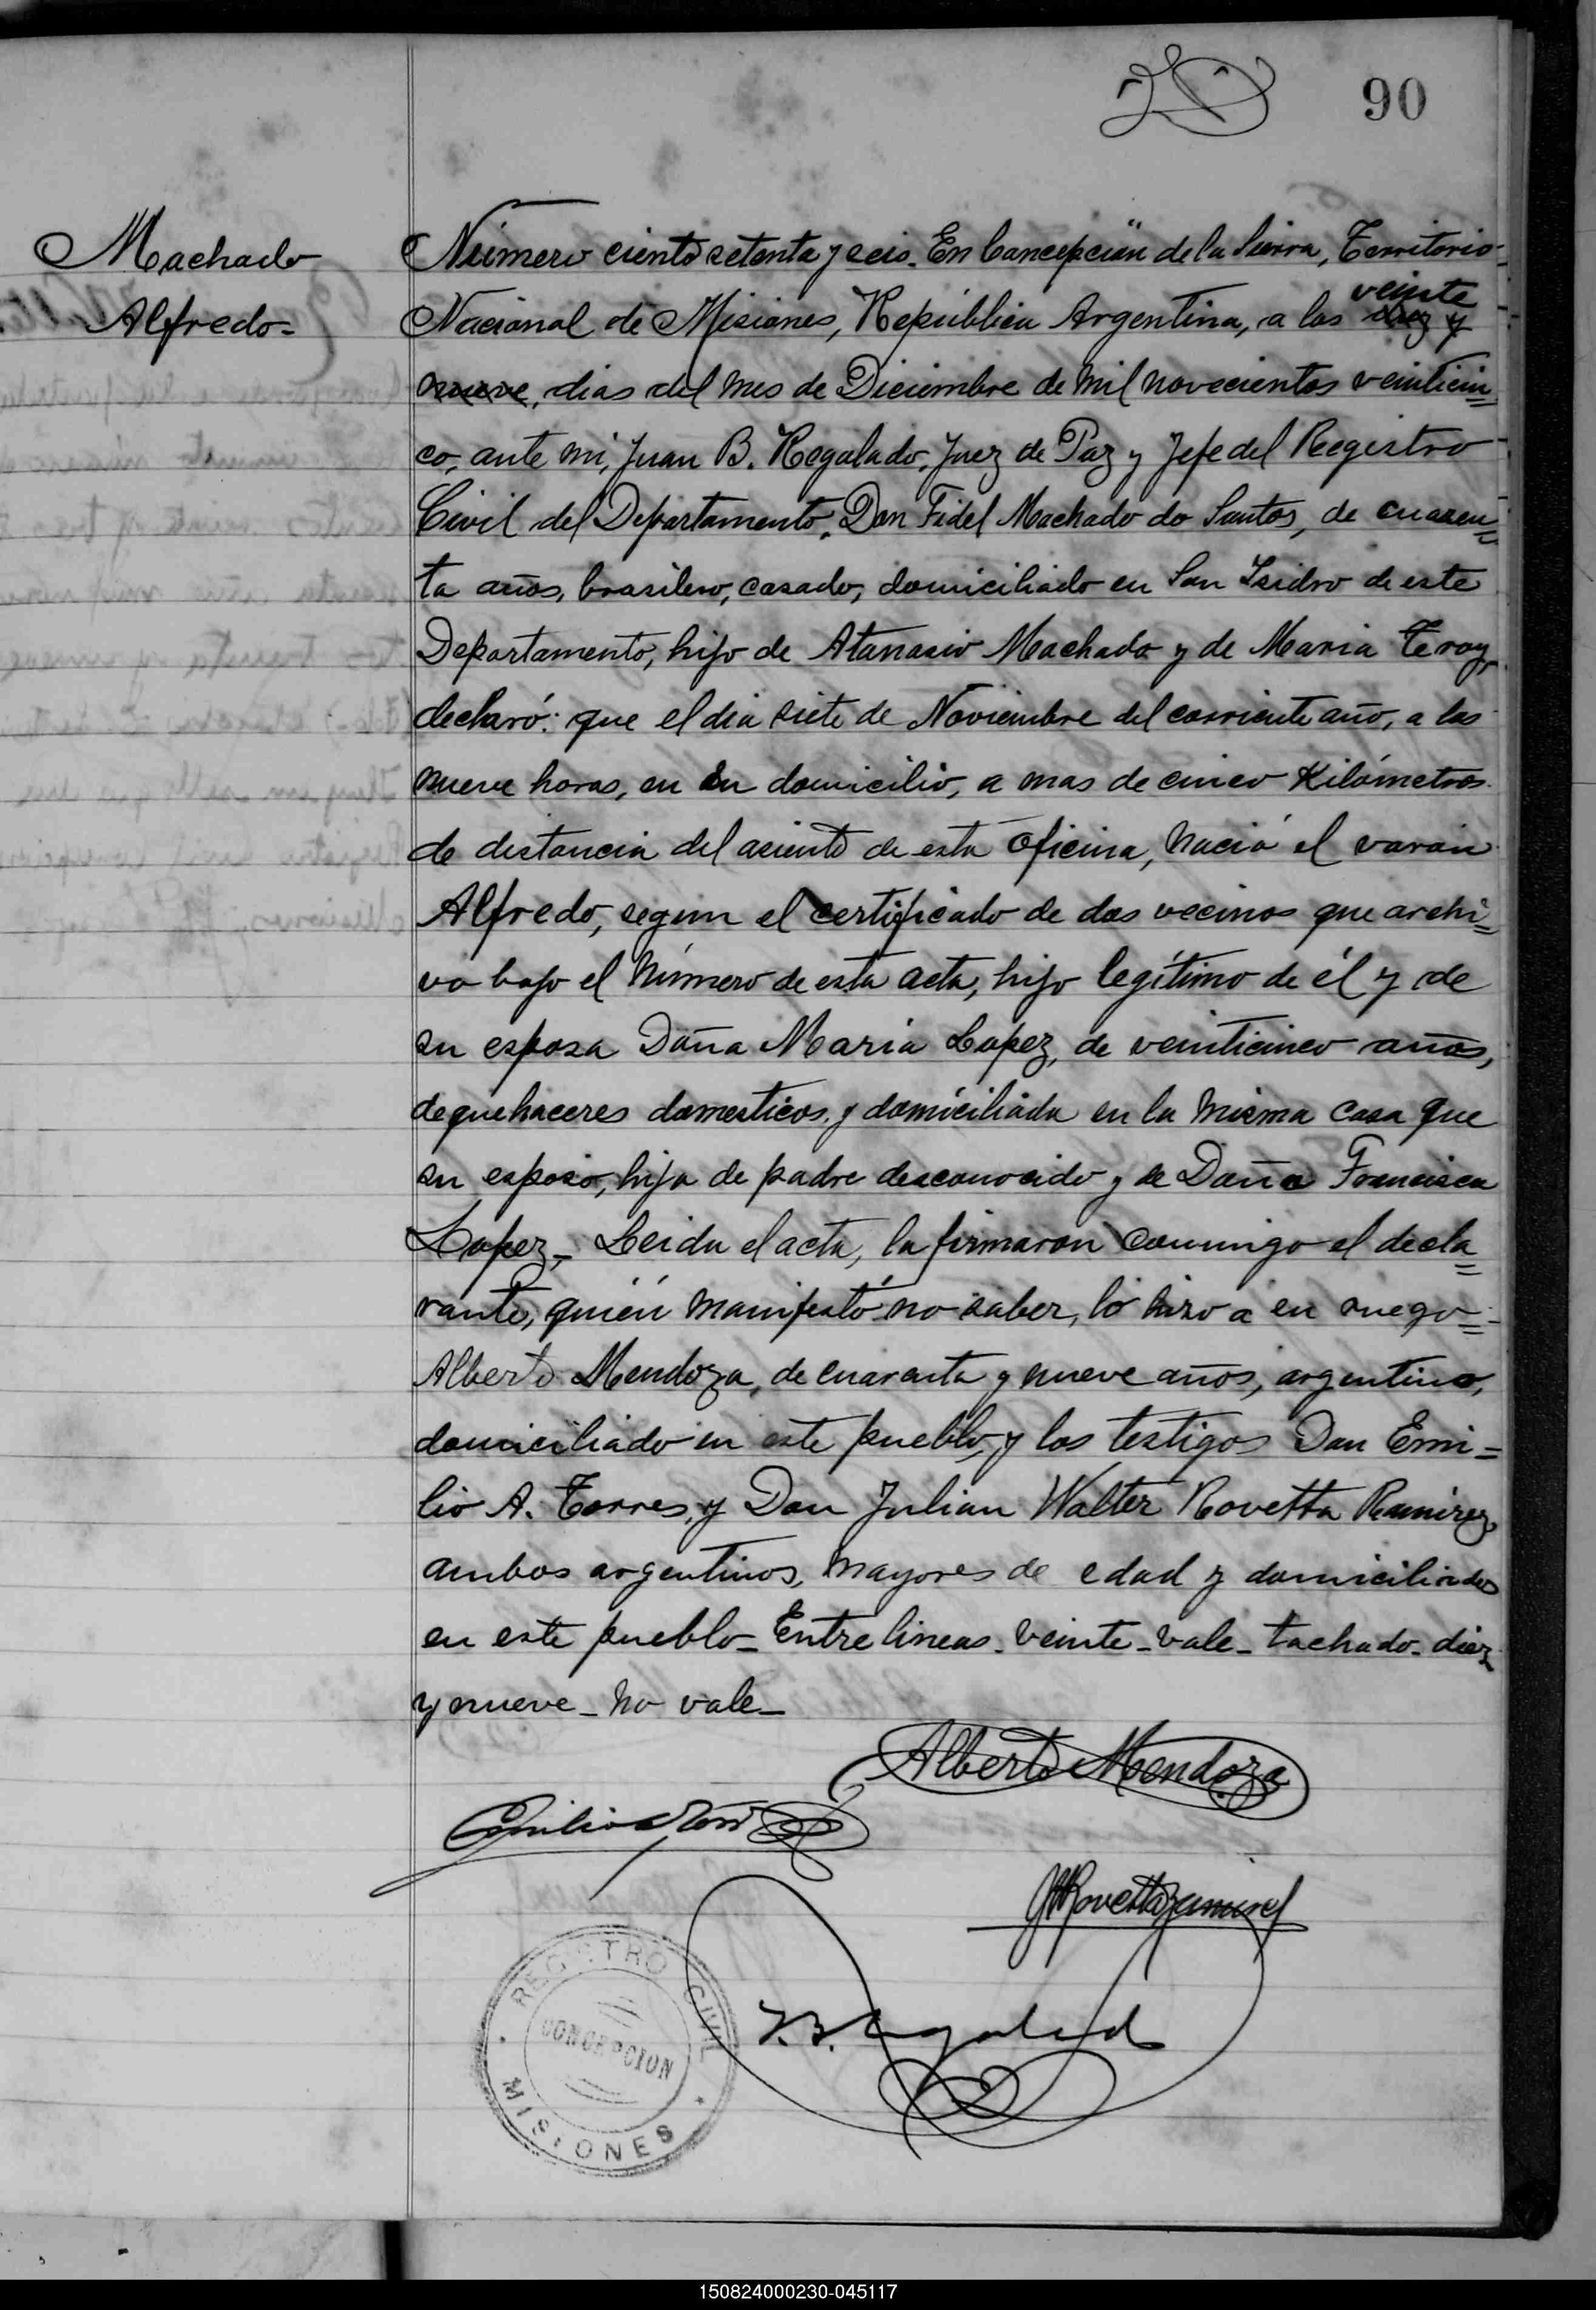 90
Machado
Alfredo=
Número ciento setenta y seis. En Concepción de la Sierra, Territorio
Nacional de Misiones, República Argentina, a los diez y
veinte
nueve, dias del mes de Diciembre de mil novecientos veinticin=
co, ante mi, Juan B. Regalado, Juez de Paz y Jefe del Registro
Civil del Departamento, Don Fidel Machado do Santos, de cuaren=
ta años, brasilero, casado, domiciliado en San Isidro de este
Departamento, hijo de Atanasio Machado y de Maria Teroy,
declaró: que el dia siete de Noviembre del corriente año, a las
nueve horas, en su domicilio, a mas de cinco Kilómetros
de distancia del aciento de esta oficina, nació el varón
Alfredo, segun el certificado de dos vecinos que archi=
vo bajo el número de esta acta, hijo legítimo de él y de
su esposa Doña Maria Lopez, de veinticinco años,
de quehaceres domesticos, y domiciliada en la misma casa que
su esposo, hija de padre desconocido y de Doña Francisca
Lopez._ Leida el acta, la firmaron conmigo el decla=
rante, quién manifestó no saber, lo hizo a su ruego=
Alberto Mendoza, de cuarenta y nueve años, argentino,
domiciliado en este pueblo, y los testigos Don Emi=
lio A. Torres, y Don Julian Walter Rovetta Ramirez,
ambos argentinos, mayores de edad y domiciliados
en este pueblo_ Entre lineas_ veinte_vale_ tachado_ diez
y nueve_ no vale_
Alberto Mendoza
Emilio A Torres
JWRovettaRamirez
J.B. Regalado
REGISTRO CIVIL
CONCEPCION
MISIONES
150824000230-045117